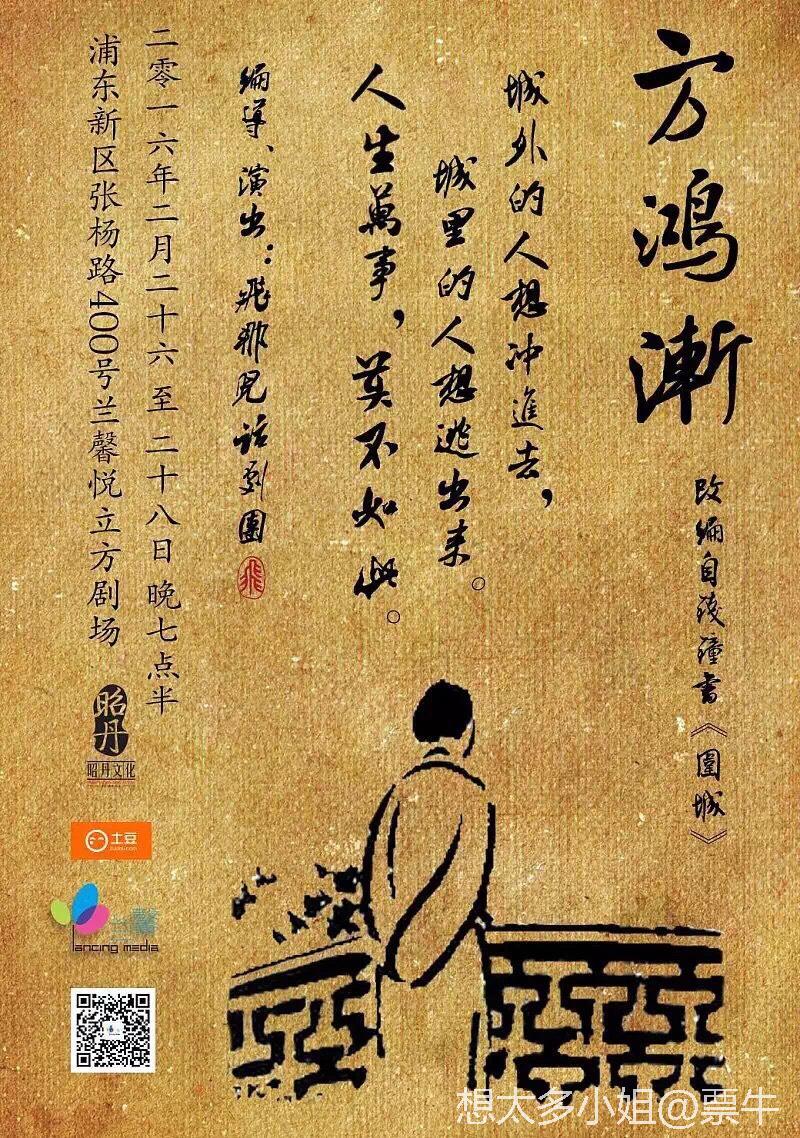 方鸿漸
改編自錢鐘書《圍城》
城外的人想冲進去，
城里的人想逃出来。
人生萬事，莫不如此。
編導、演出：飛那兒话劇團
飛
二零一六年二月二十六至二十八日晚七点半
浦东新区张杨路400号兰馨悦立方剧场
昭丹
昭丹文化
土豆
兰馨
lancing media
想太多小姐@票牛